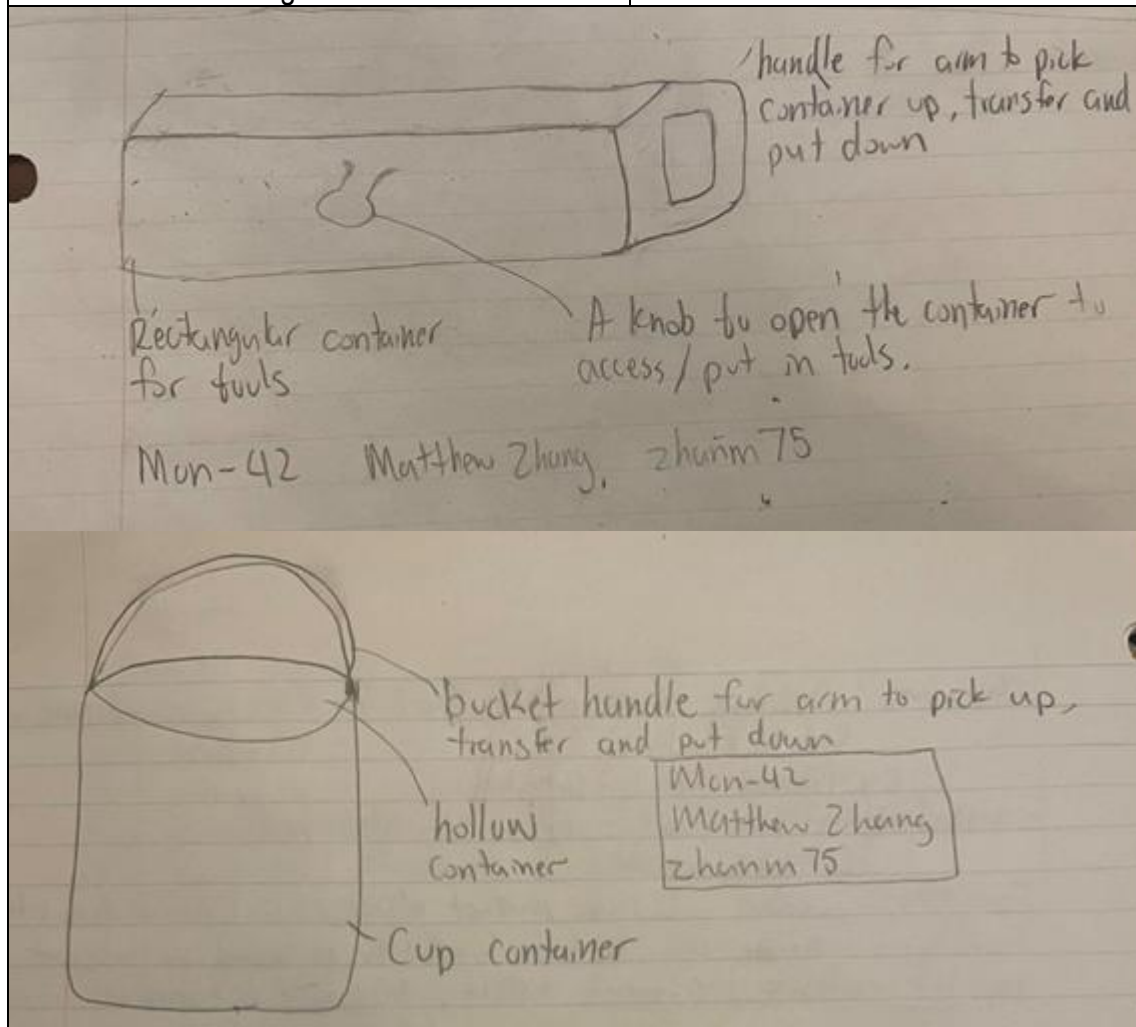 handle for arm to pick
container up, transfer and
put down
Rectangular container
for tools
A knob to open the container to
access/put in tools.
Mon-42 Matthew Zhang, zhanm75
bucket handle for arm to pick up,
transfer and put down
Mon-42
Matthew Zhang
zhanm75
hollow
container
Cup container